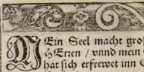 MEin Seel macht gro
HErren / vnnd mein
hat sich erfrewet inn G